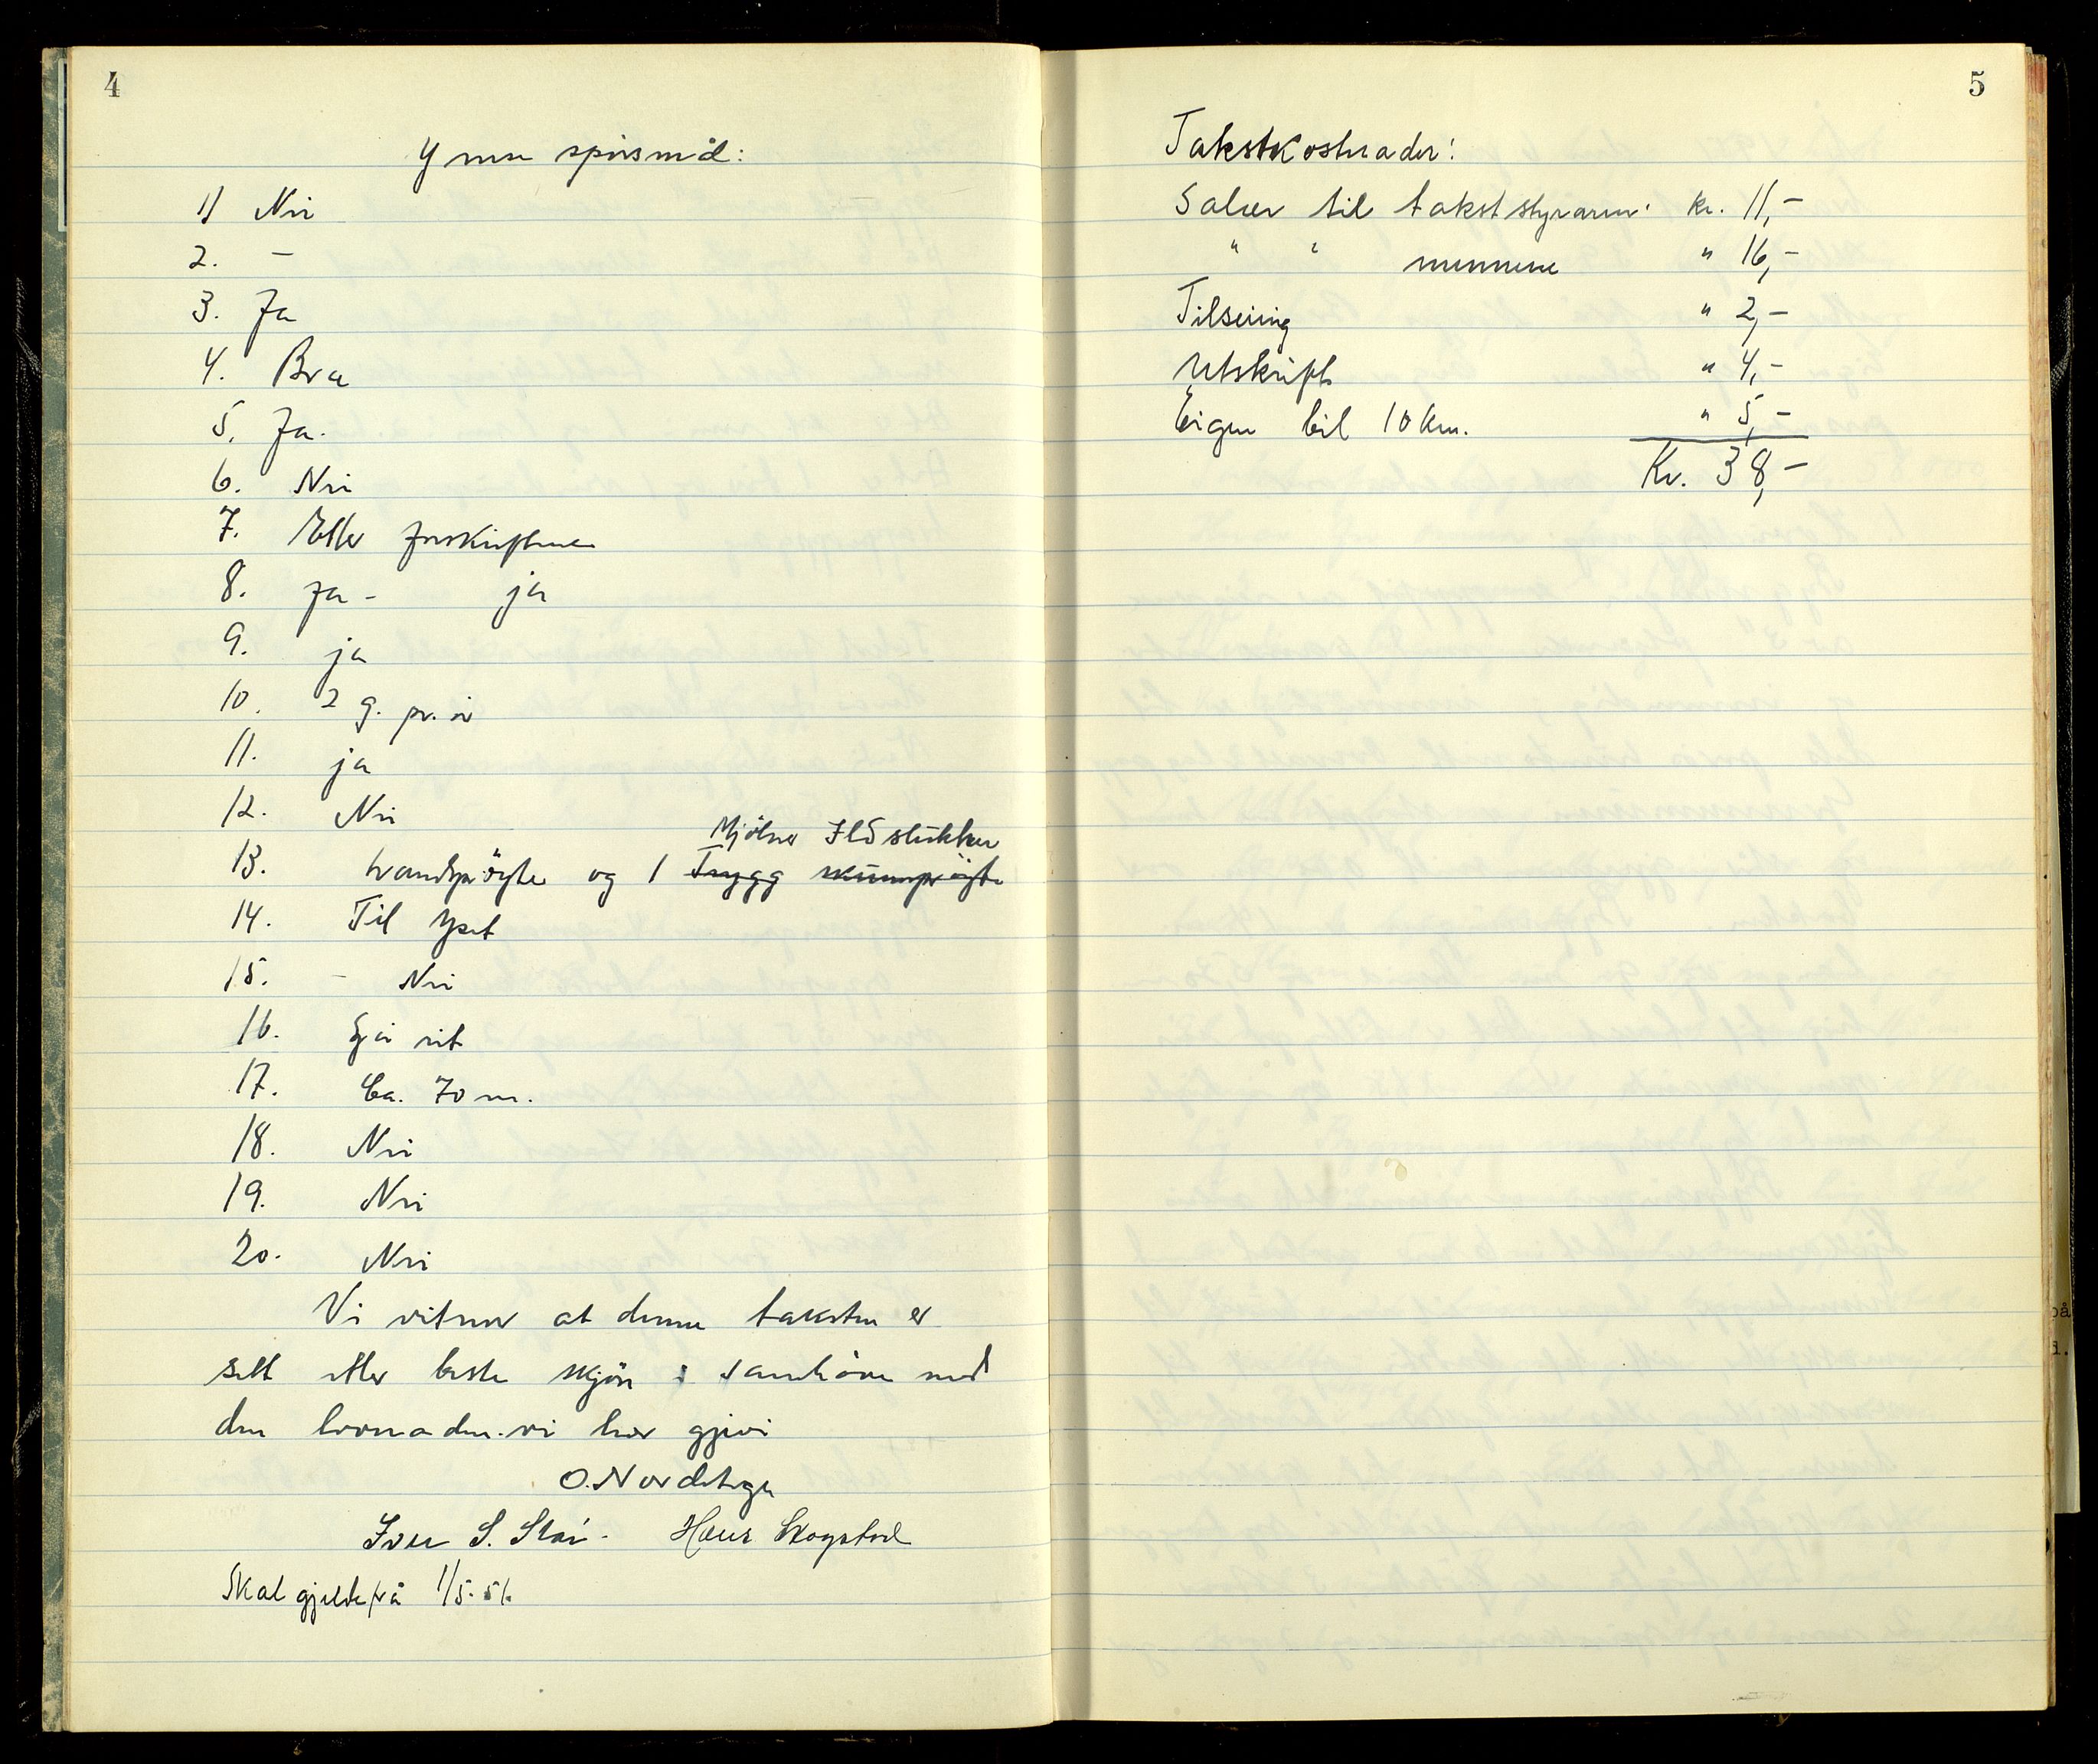 4
Ymse spörsmål:
1) Nei
2. -
3. Ja
4. Bra
5. Ja.
6. Nei
7. Etter forskriftene
8. Ja - ja
9. ja
10. 2 g. pr. år
11. ja
12. Nei
Mjölner Ildslukker
13. Handspröyte og 1 Trygg skumspröyte
14. Til Yset
15. - Nei
16. Gå rit
17. Ca. 70 m.
18. Nei
19. Nei
20. Nei
Vi vitner at denne taksten er
sett etter beste skjön i samhöve med
den lovnaden vi har gjevi
O. Nordhagen
Iver S. Stai. Hans Skogstad
Skal gjelde frå 1/5. 51.
5
Takstkostnader:
Salær til takststyraren: kr. 11,-
" " mennene " 16,-
Tilseiing " 2,-
Utskrift " 4,-
Eigen bil 10 km. " 5,-
Kr. 38,-
på
d.